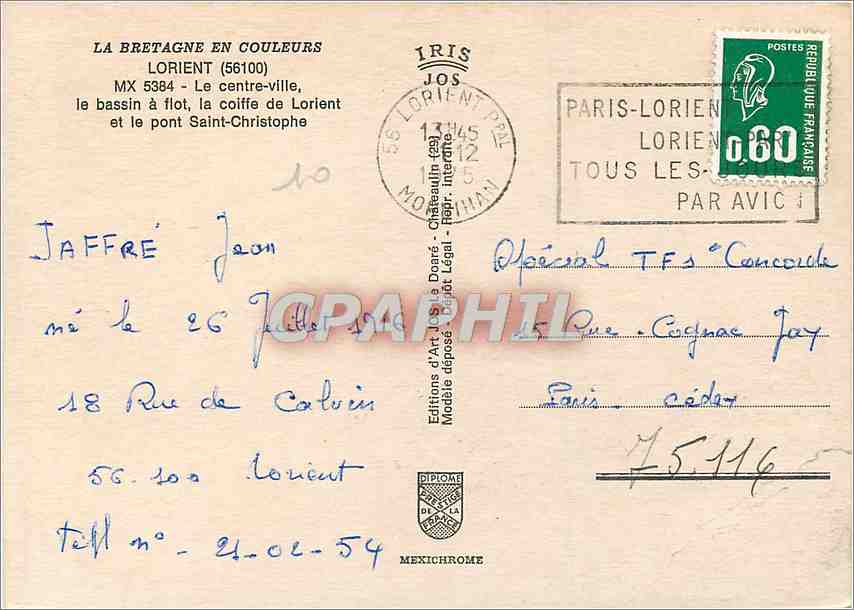 LA BRETAGNE EN COULEURS
LORIENT (56100)
MX 5384 - Le centre-ville,
le bassin à flot, la coiffe de Lorient
et le pont Saint-Christophe
IRIS
JOS
56 LORIENT PPAL
13H45
12
MORBIHAN
PARIS-LORIEN
LORIEN PAR
TOUS LES
PAR AVIO
POSTES
REPUBLIQUE FRANÇAISE
0,60
10
JAFFRÉ Jean
né le 26 Juillet 1916
18 Rue de Calvin
56.100 Lorient
Tefl n° - 21-02-54
Editions d'Art JOS Le Doaré - Châteaulin (29)
Modèle déposé - Dépôt Légal - Repr. interdite
CPAPHIL
Spécial TF1 "Concorde
15 Rue. Cognac Jay
Paris. cédex
75.116
DIPLOME
PRESTIGE
DE LA
FRANCE
MEXICHROME